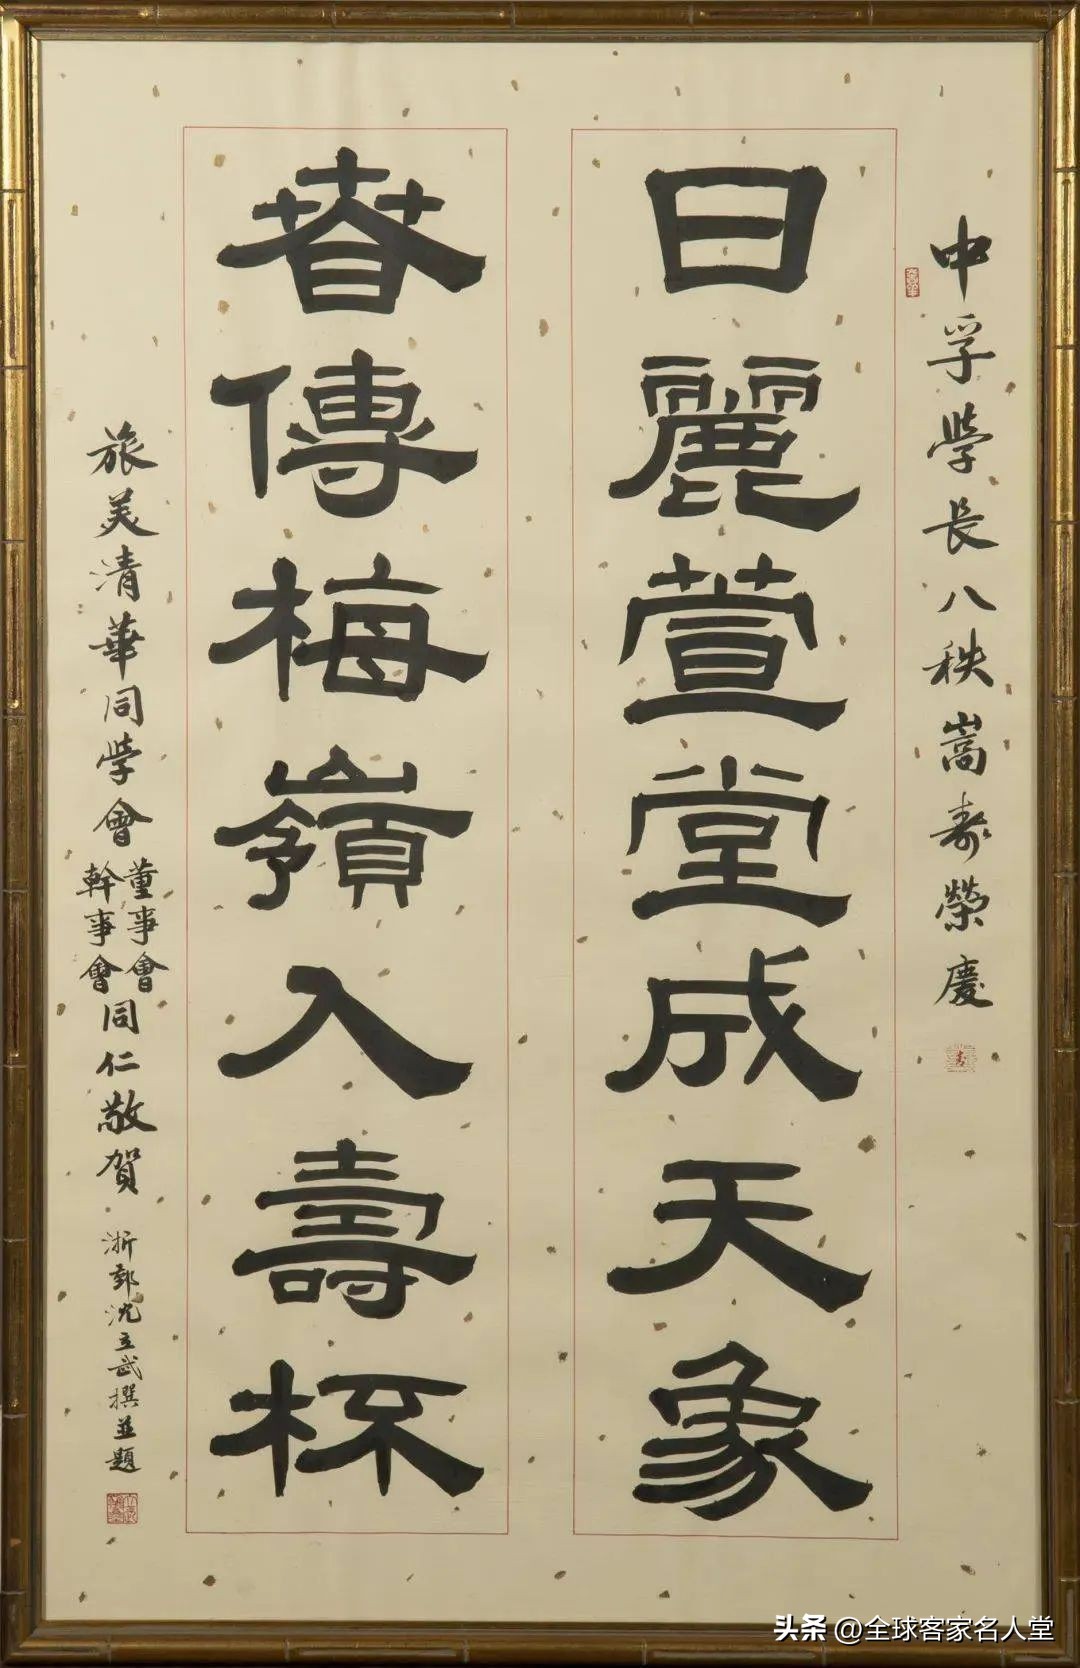 中孚學長八秩嵩壽榮慶
日麗萱堂成天象
春傳梅嶺入壽杯
旅美清華同學會
董事會
幹事會
同仁敬賀
浙鄞沈立武撰並題
头条 @全球客家名人堂